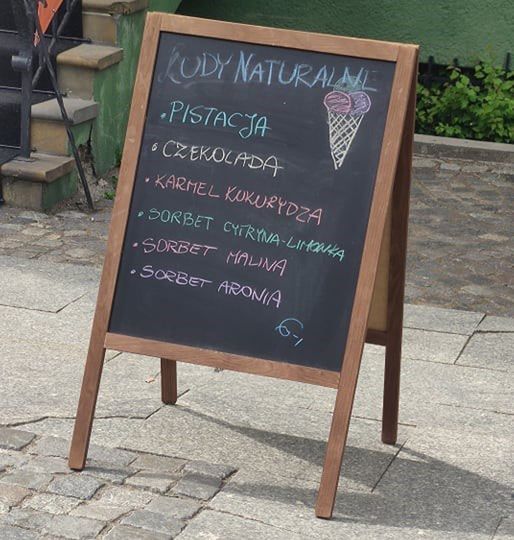 LODY NATURALNE
• PISTACJA
• CZEKOLADA
• KARMEL KUKURYDZA
• SORBET CYTRYNA-LIMONKA
• SORBET MALINA
• SORBET ARONIA
6,-